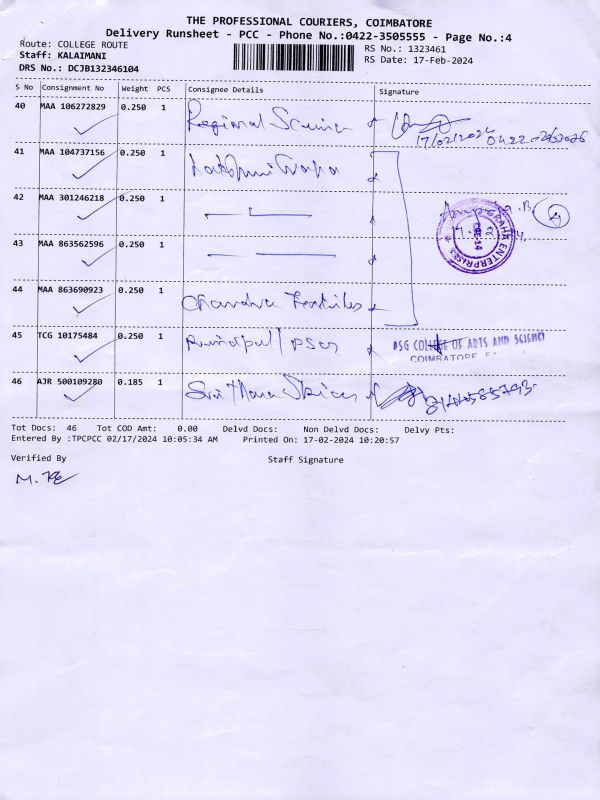 THE PROFESSIONAL COURIERS, COIMBATORE
Delivery Runsheet - PCC - Phone No.:0422-3505555 - Page No.:4
Route: COLLEGE ROUTE
RS No.: 1323461
Staff: KALAIMANI
RS Date: 17-Feb-2024
DRS No.: DCJB132346104
S No Consignment No Weight PCS Consignee Details Signature
40 MAA 106272829 0.250 1 Regional Science
17/02/2024
41 MAA 104737156 0.250 1 Lakshmi
42 MAA 301246218 0.250 1
43 MAA 863562596 0.250 1
ENTERPRISES
44 MAA 863690923 0.250 1 Chandra Textiles
45 TCG 10175484 0.250 1 Principal / PSG
PSG COLLEGE OF ARTS AND SCIENCE
COIMBATORE
46 AJR 500109280 0.185 1 Sri
Tot Docs: 46 Tot COD Amt: 0.00 Delvd Docs: Non Delvd Docs: Delvy Pts:
Entered By :TPCPCC 02/17/2024 10:05:34 AM Printed On: 17-02-2024 10:20:57
Verified By Staff Signature